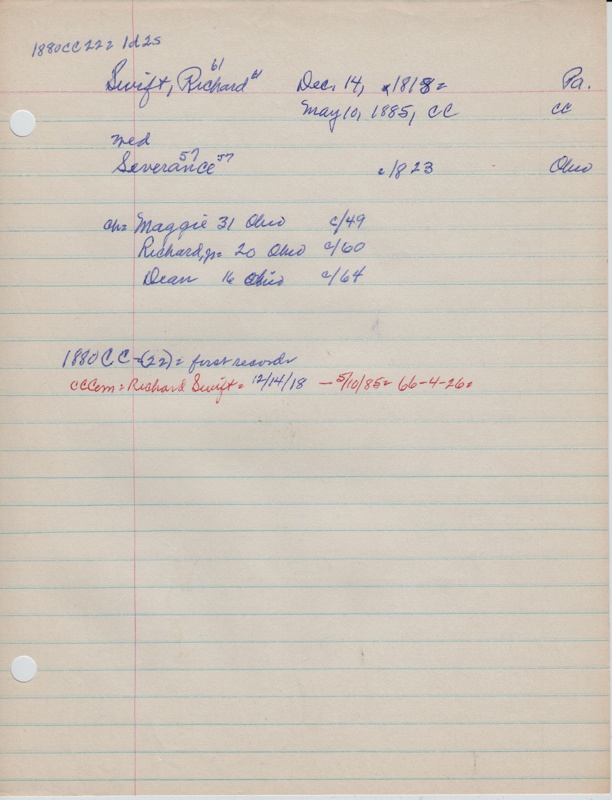 1880CC22= 1d2s
61
Swift, Richard 61 Dec. 14, 1818= Pa.
May 10, 1885, CC CC
wed
57
Severance 57 c/823 Ohio
ch= Maggie 31 Ohio c/49
Richard, jr= 20 Ohio c/60
Dean 16 Ohio c/64
1880CC-(22)= first records
CCCem= Richard Swift= 12/14/18 — 5/10/85= 66-4-26=